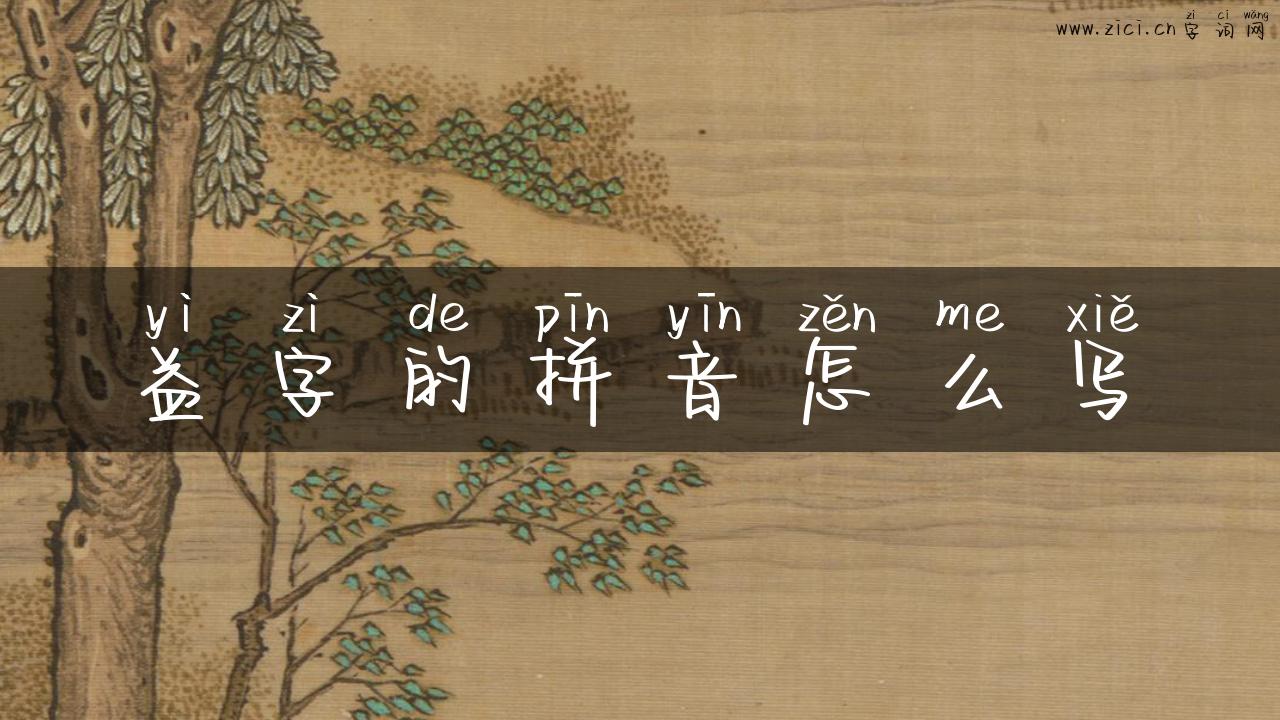 zì cí wǎng
www.zici.cn 字 词 网
yì zì de pīn yīn zěn me xiě
益 字 的 拼 音 怎 么 写